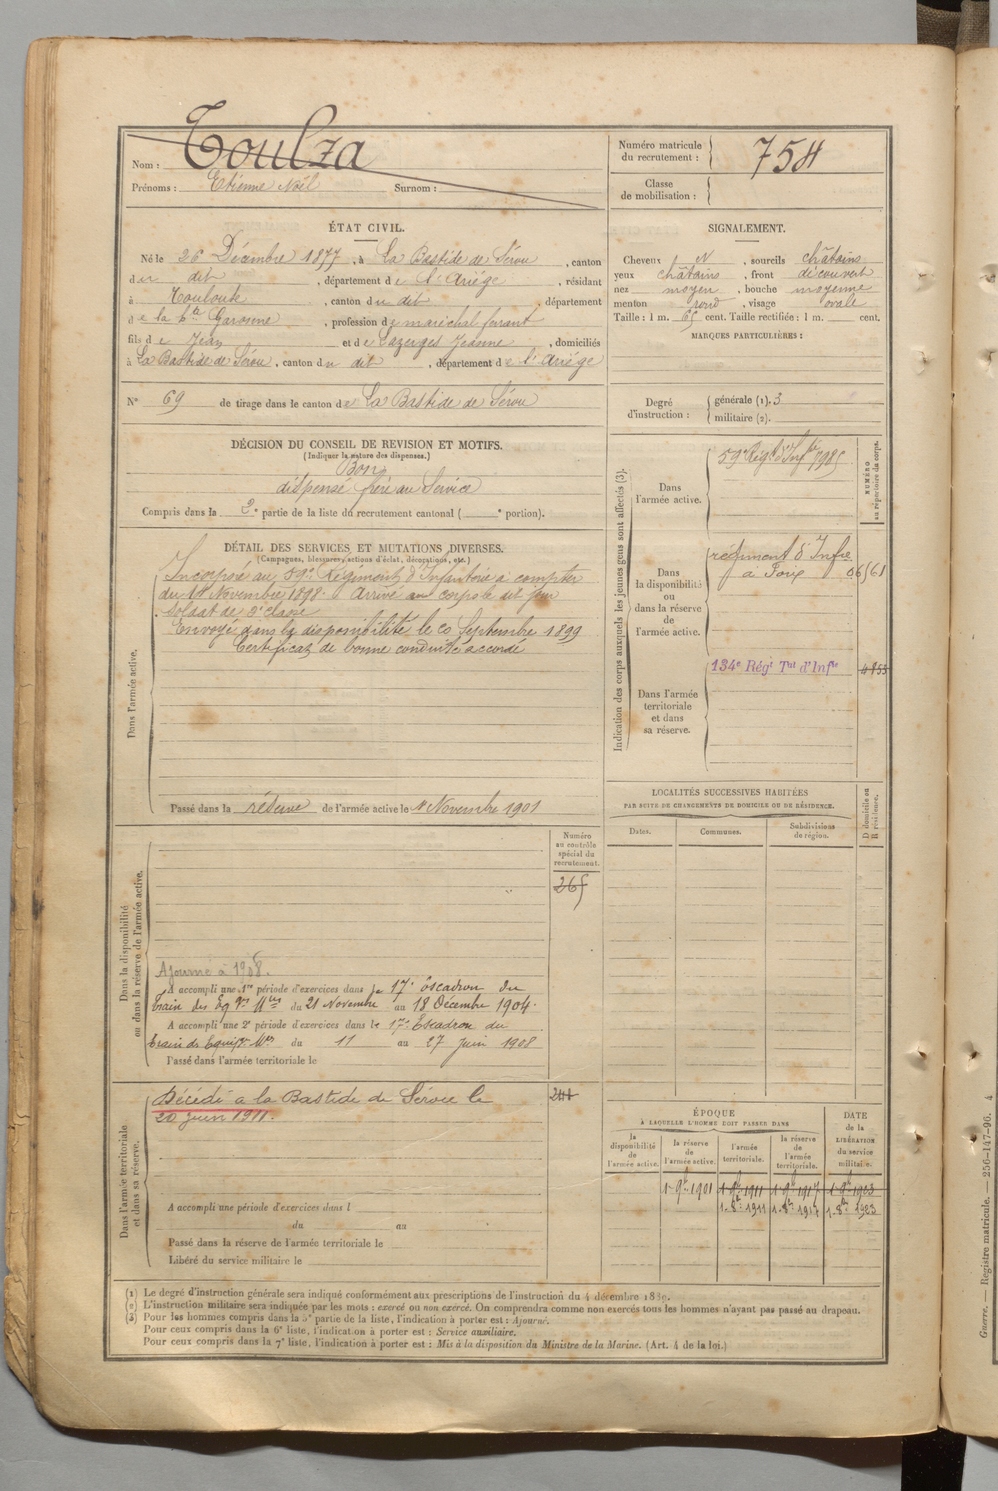 Nom : Toulza
Prénoms : Etienne Noël Surnom :
Numéro matricule du recrutement : 754
Classe de mobilisation :
ÉTAT CIVIL.
Né le 26 Décembre 1877, à La Bastide de Sérou, canton
du dit, département de l'Ariége, résidant
à Toulouse, canton du dit, département
de la Hte Garonne, profession de maréchal ferrant
fils de Jean et de Lazerges Jeanne, domiciliés
à La Bastide de Sérou, canton du dit, département de l'Ariége
N° 69 de tirage dans le canton de La Bastide de Sérou
SIGNALEMENT.
Cheveux N, sourcils châtains
yeux châtains, front découvert
nez moyen, bouche moyenne
menton rond, visage ovale
Taille : 1 m. 65 cent. Taille rectifiée : 1 m. cent.
MARQUES PARTICULIÈRES :
Degré d'instruction : générale (1). 3
militaire (2).
DÉCISION DU CONSEIL DE REVISION ET MOTIFS.
(Indiquer la nature des dispenses.)
Bon
dispensé frère au Service
Compris dans la 2e partie de la liste du recrutement cantonal ( e portion).
DÉTAIL DES SERVICES ET MUTATIONS DIVERSES.
(Campagnes, blessures, actions d'éclat, décorations, etc.)
Dans l'armée active.
Incorporé au 59e Régiment d'Infanterie à compter
du 14 Novembre 1898. Arrivé au corps le dit jour
Soldat de 2e classe
Envoyé dans la disponibilité le 20 Septembre 1899
Certificat de bonne conduite accordé
Passé dans la réserve de l'armée active le 1 Novembre 1901
Indication des corps auxquels les jeunes gens sont affectés (3).
NUMÉRO au répertoire du corps.
Dans l'armée active.
59e Régt d'Infie 7985
Dans la disponibilité ou dans la réserve de l'armée active.
régiment d'Infie
à Foix 06561
Dans l'armée territoriale et dans sa réserve.
134e Régt Tal d'Infie 4853
LOCALITÉS SUCCESSIVES HABITÉES
PAR SUITE DE CHANGEMENTS DE DOMICILE OU DE RÉSIDENCE.
Dates. Communes. Subdivisions de région. D domicile ou R résidence.
Dans la disponibilité ou dans la réserve de l'armée active.
Numéro au contrôle spécial du recrutement.
265
Ajourné à 1908.
A accompli une 1re période d'exercices dans le 17e escadron du
train des Eqges Mres du 21 Novembre au 18 Décembre 1904.
A accompli une 2e période d'exercices dans le 17e Escadron du
train des Equipges Mres du 11 au 27 juin 1908
Passé dans l'armée territoriale le
Dans l'armée territoriale et dans sa réserve.
Décédé à la Bastide de Sérou le
20 juin 1911.
A accompli une période d'exercices dans l
du au
Passé dans la réserve de l'armée territoriale le
Libéré du service militaire le
ÉPOQUE
À LAQUELLE L'HOMME DOIT PASSER DANS
la disponibilité de l'armée active. la réserve de l'armée active. l'armée territoriale. la réserve de l'armée territoriale. DATE de la LIBÉRATION du service militaire.
1er 9bre 1901 1er 9bre 1911 1er 9bre 1917 1er 9bre 1923
1er 8bre 1911 1er 8bre 1917 1er 8bre 1923
(1) Le degré d'instruction générale sera indiqué conformément aux prescriptions de l'instruction du 4 décembre 1889.
(2) L'instruction militaire sera indiquée par les mots : exercé ou non exercé. On comprendra comme non exercés tous les hommes n'ayant pas passé au drapeau.
(3) Pour les hommes compris dans la 5e partie de la liste, l'indication à porter est : Ajourné.
Pour ceux compris dans la 6e liste, l'indication à porter est : Service auxiliaire.
Pour ceux compris dans la 7e liste, l'indication à porter est : Mis à la disposition du Ministre de la Marine. (Art. 4 de la loi.)
Guerre. — Registre matricule. — 256-147-96. 4